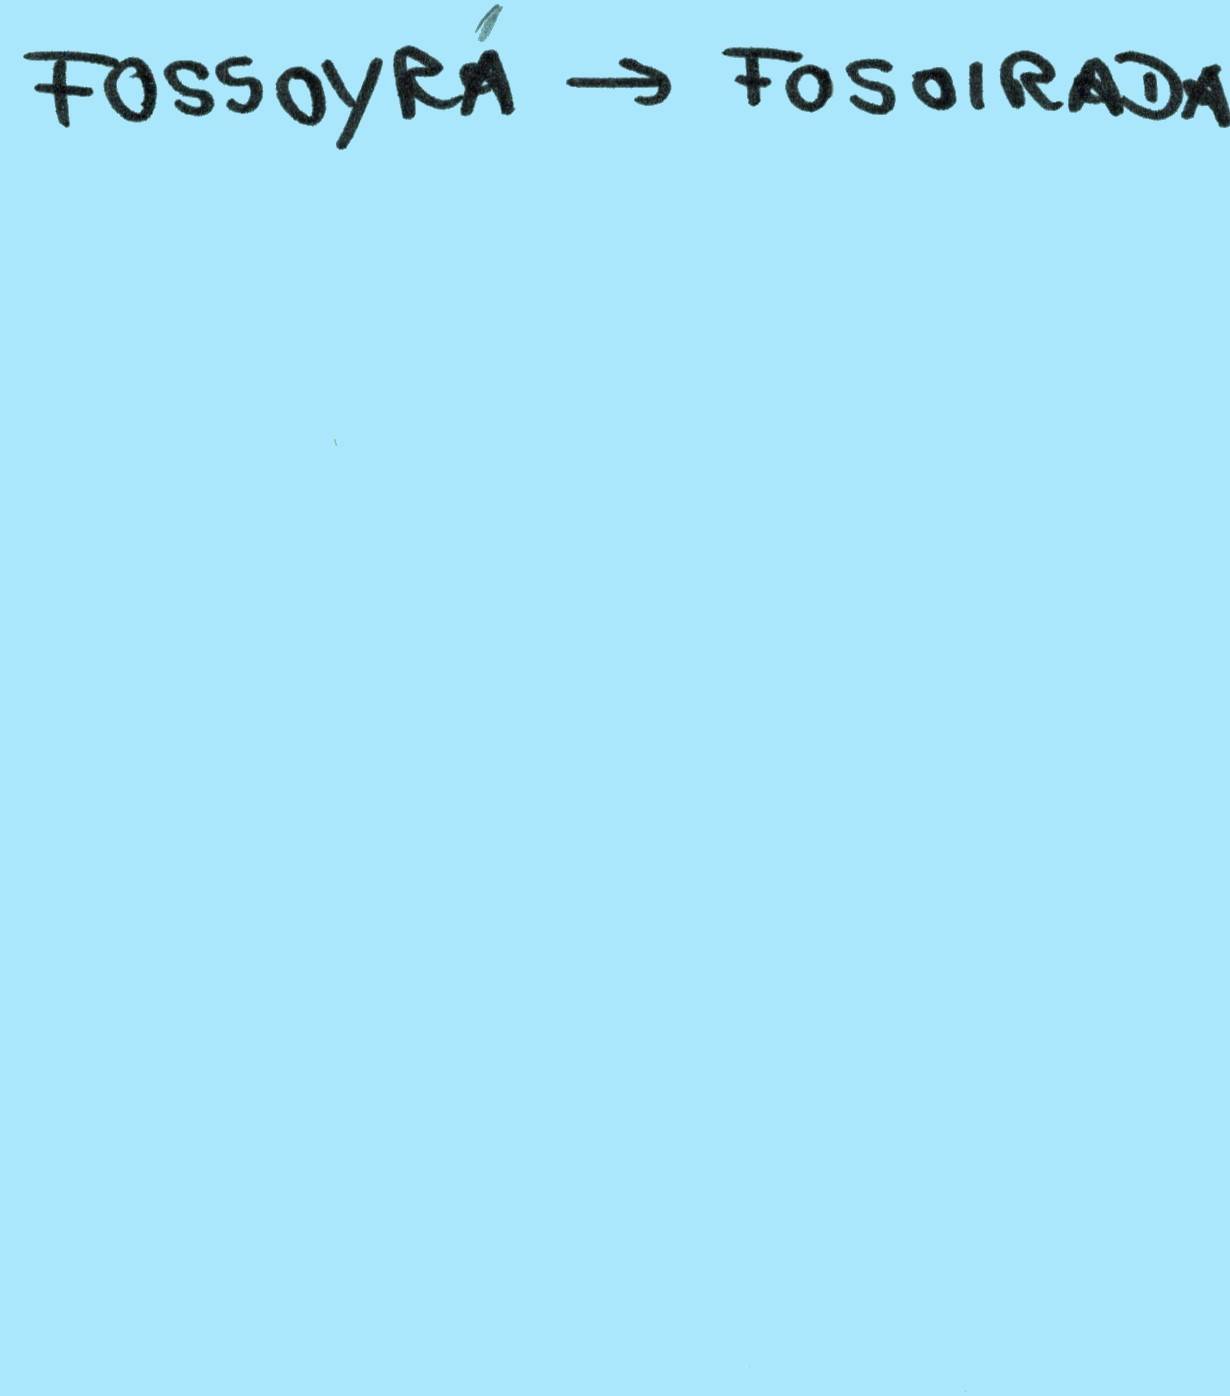 FOSSOYRÁ → FOSOIRADA